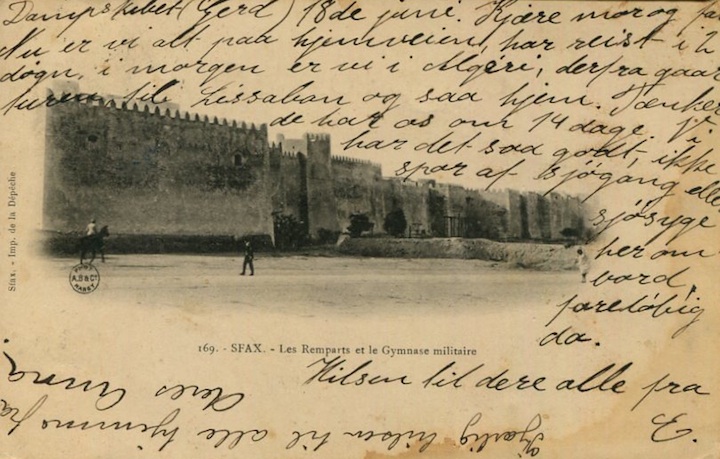 Dampskibet (Gerd) 18de juni. Kjære mor og far
Nu er vi alt paa hjemveien, har reist i 2
døgn, i morgen er vi i Algeri, derfra gaar
turen til Lissabon og saa hjem. Tænker
de har os om 14 dage. Vi
har det saa godt, ikke
spor af sjögang eller
sjösyge
her om-
bord,
foreløbig
da.
Hilsen til dere alle fra
E.
Hjertlig hilsen til alle hjemme fra
Deres Anna
169. - SFAX. - Les Remparts et le Gymnase militaire
Sfax. - Imp. de la Dépêche
A.B & Cie
NANCY